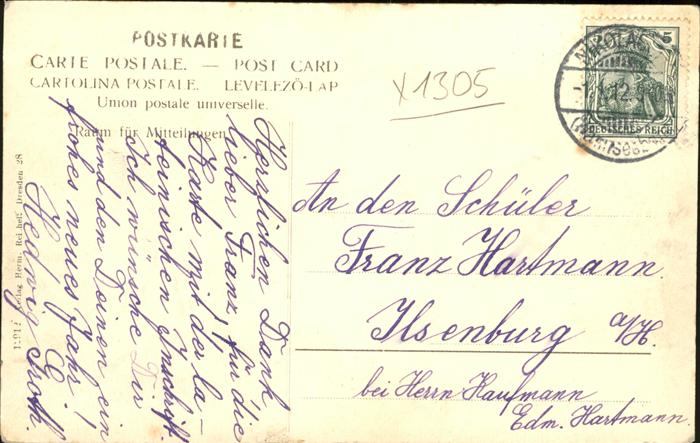 POSTKARTE
CARTE POSTALE. — POST CARD
CARTOLINA POSTALE. LEVELEZŐ-LAP
Union postale universelle.
Raum für Mitteilungen
x1305
5
DEUTSCHES REICH
NIKOLAS
(Wannseebahn)
Herzlichen Dank
lieber Franz, für die
Karte mit der la-
teinischen Inschrift.
Ich wünsche Dir
und den Deinen ein
frohes neues Jahr!
Hedwig Groth.
An den Schüler
Franz Hartmann.
Ilsenburg a/H.
bei Herrn Kaufmann
Edm. Hartmann.
Verlag Herm. Dresden 28